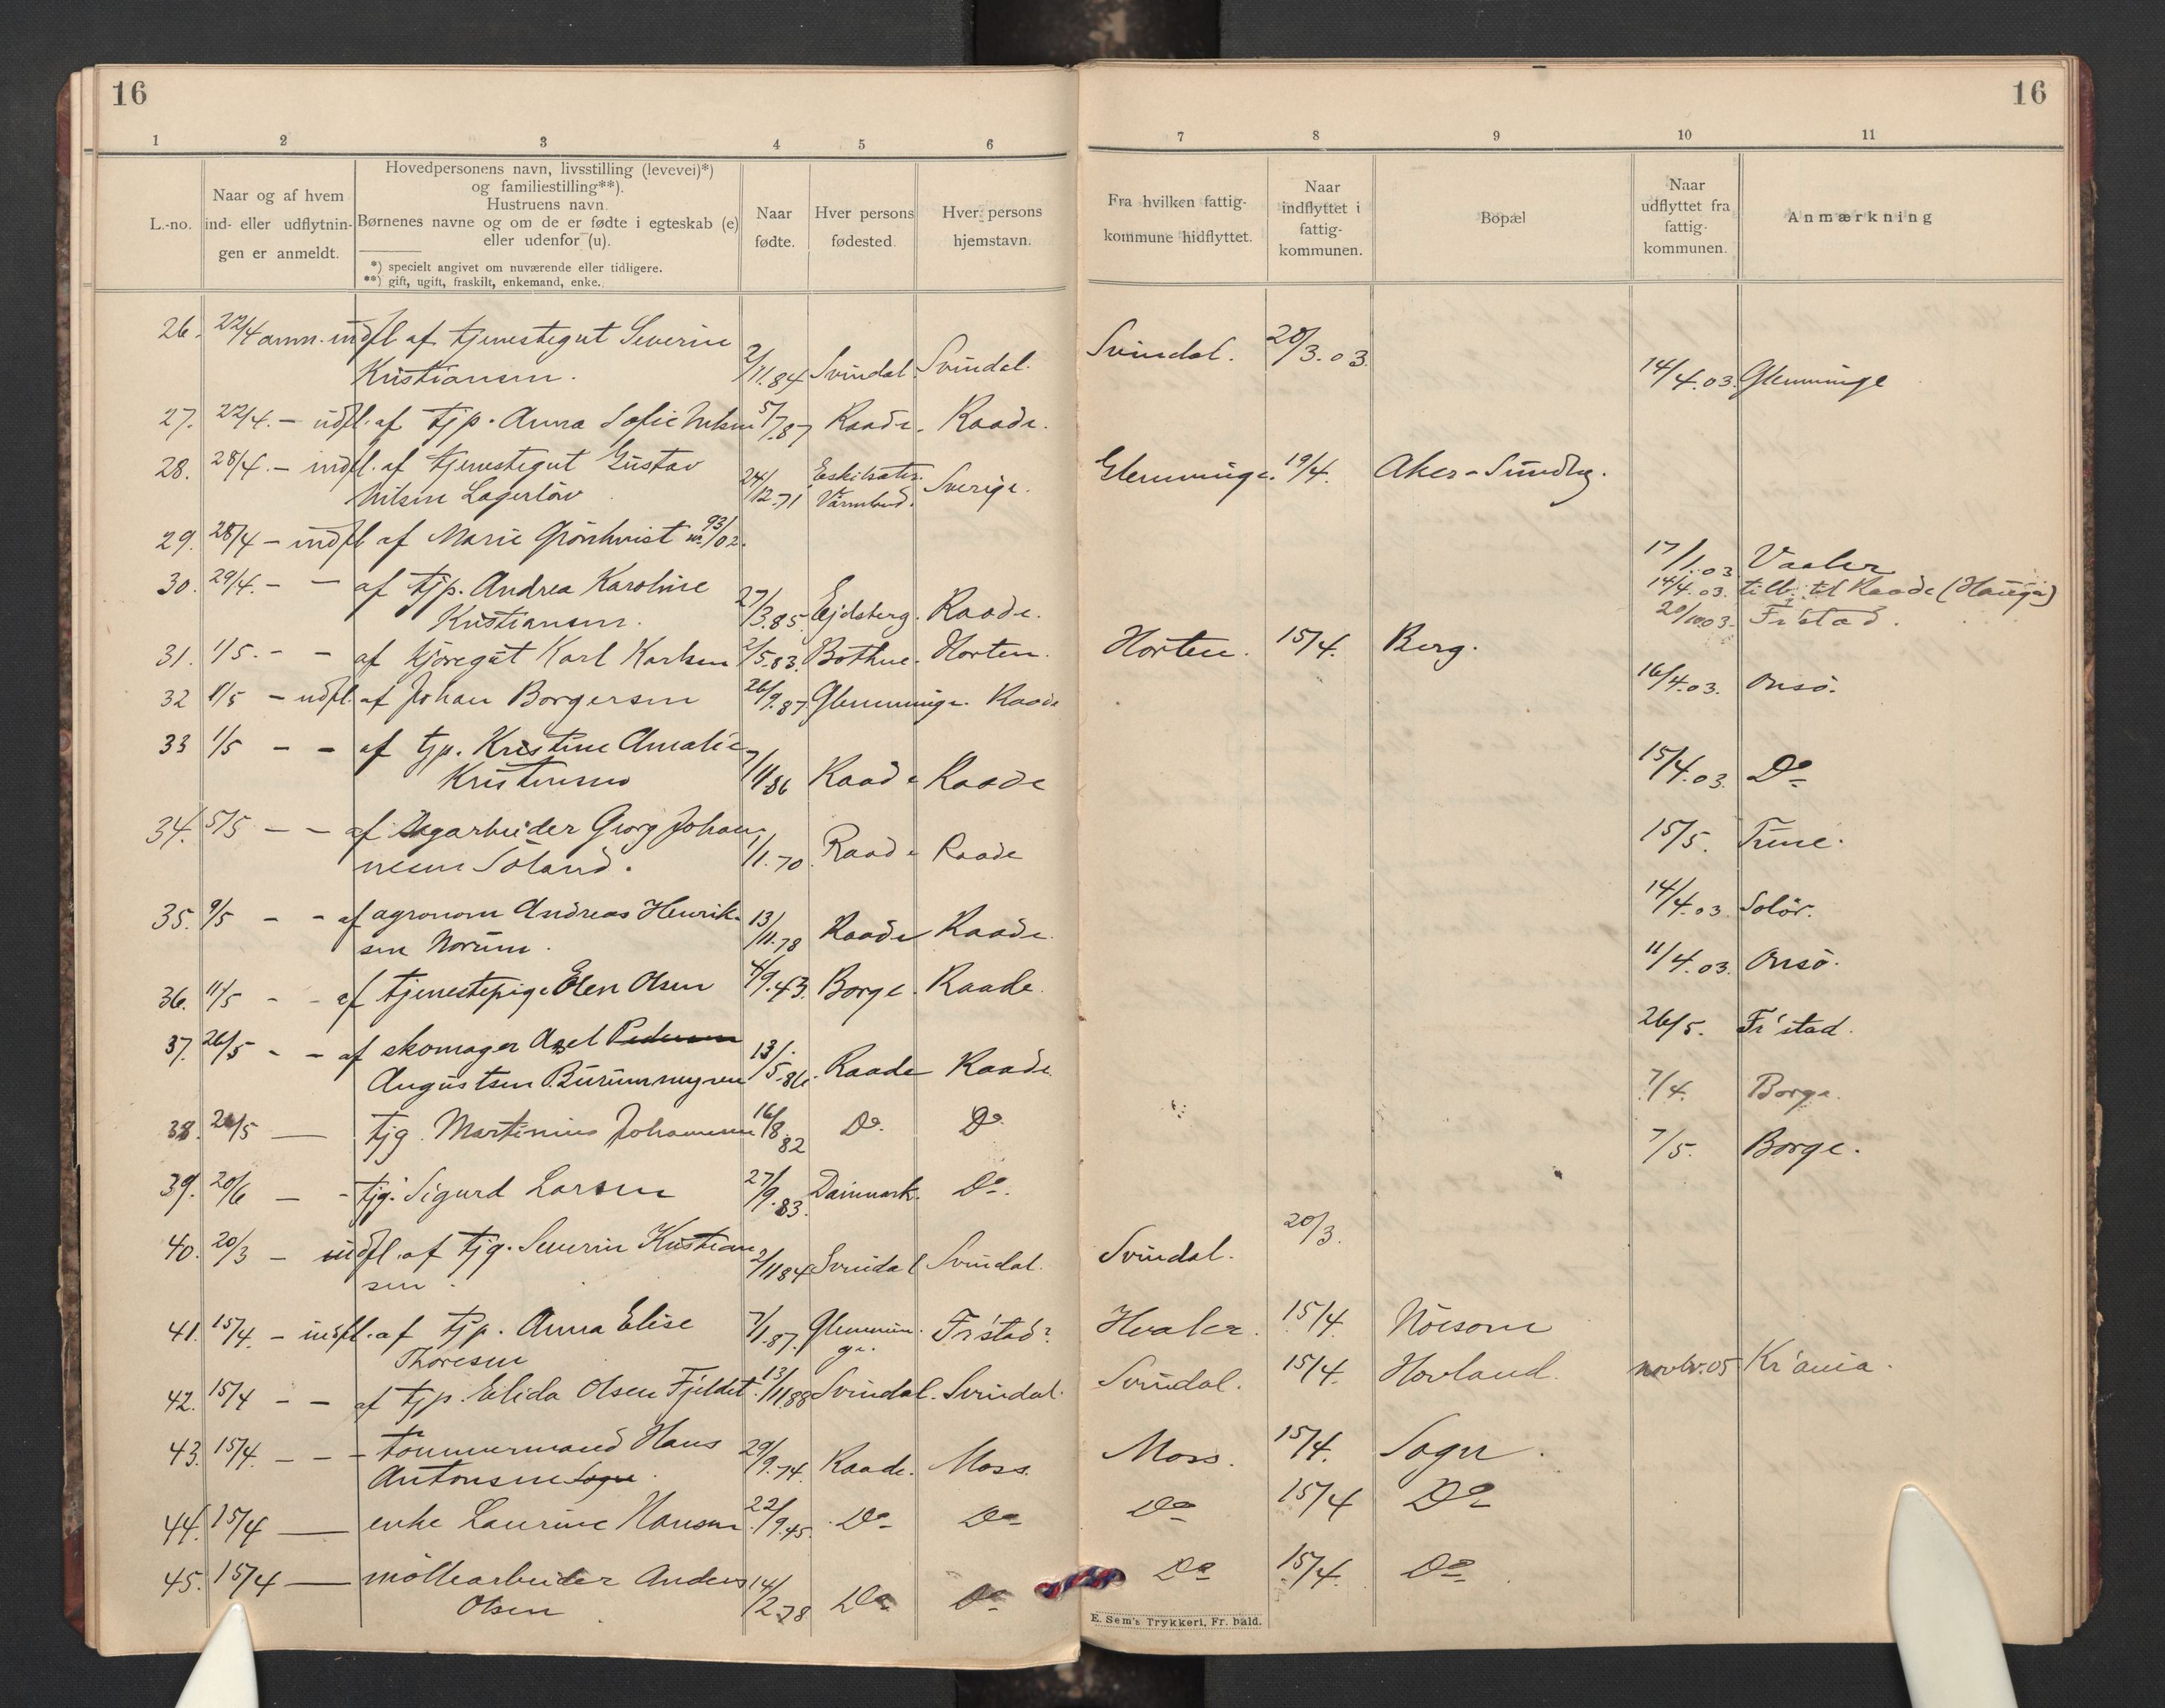 16
1 2 3 4 5 6
L.-no.
Naar og af hvem
ind- eller udflytnin-
gen er anmeldt.
Hovedpersonens navn, livsstilling (levevei)*)
og familiestilling**).
Hustruens navn.
Børnenes navne og om de er fødte i egteskab (e)
eller udenfor (u).
*) specielt angivet om nuværende eller tidligere.
**) gift, ugift, fraskilt, enkemand, enke.
Naar
fødte.
Hver persons
fødested.
Hver persons
hjemstavn.
26. 22/4 anm. indfl af tjenestegut Severin
Kristiansen. 2/11.84 Svindal. Svindal.
27. 22/4. — udfl. af tjp. Anna Sofie Nilsen 5/7.87 Raade. Raade.
28. 28/4. — indfl. af tjenestegut Gustav
Nilsen Lagerløv 24/12.71 Eskilsäter. Värmland. Sverige.
29. 28/4 — indfl af Marie Grönkvist nr. 93/02.
30. 29/4. — — af tjp. Andrea Karoline
Kristiansen. 27/3.85 Ejdsberg. Raade.
31. 1/5. — — af kjøregut Karl Karlsen 2/5.83. Bothne. Horten.
32 1/5 — udfl. af Johan Borgersen 26/9.87. Glemminge. Raade
33 1/5 — — af tjp. Kristine Amalie
Kristensen 7/11.86 Raade Raade
34. 5/5 — — af Sagarbeider Georg Johan-
nesen Söland. 1/11.70. Raade Raade
35. 9/5 — — af agronom Andreas Henrik-
sen Norum. 13/11.78 Raade Raade.
36. 11/5 — — af tjenestepige Elen Olsen 4/9.43. Borge. Raade.
37. 26/5 — — af skomager Axel Pedersen
Augustsen Burummyren 13/5.86. Raade Raade
38. 26/5 — tjg. Martinius Johannesen 16/8.82 Do. Do.
39. 20/6 — — tjg. Sigurd Larsen 27/9.83. Dainmark. Do.
40. 20/3 — indfl. af tjg. Severin Kristian
sen. 2/11 84 Svindal Svindal.
41. 15/4. — indfl. af tjp. Anna Elise
Thoresen 7/1.87. Glemmin-ge. Fr'stad?
42. 15/4 — — af tjp. Elida Olsen Fjeldet 13/11.88 Svindal. Svindal.
43. 15/4. — — — Tømmermand Hans
Antonsen Sogn. 29/9.74. Raade. Moss.
44. 15/4 — enke Laurine Hansen 22/9.45. Do Do
45. 15/4 — møllearbeider Anders
Olsen 14/2.78 Do Do
16
7 8 9 10 11
Fra hvilken fattig-
kommune hidflyttet.
Naar
indflyttet i
fattig-
kommunen.
Bopæl
Naar
udflyttet fra
fattig-
kommunen.
Anmærkning
Svindal. 20/3.03.
14/4.03. Glemminge
Glemminge. 19/4. Aker-Sundby.
17/1.03 Vaaler
14/4.03. tilb. til Raade (Hauge)
20/10.03. Fr'stad.
Horten. 15/4. Berg.
16/4.03. Onsø.
15/4.03. Do
15/5. Tune.
14/4.03 Solör.
11/4.03. Onsö.
26/5. Fr'stad.
7/4. Borge.
7/5. Borge.
Svindal. 20/3.
Hvaler. 15/4. Nöisom
Svindal. 15/4. Hovland. novbr. 05 Kr'ania.
Moss. 15/4. Sogn.
Do 15/4 Do
Do 15/4. Do
E. Sem's Trykkeri, Fr. hald.